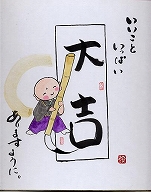 いいこと
いっぱい
大吉
ありますように。